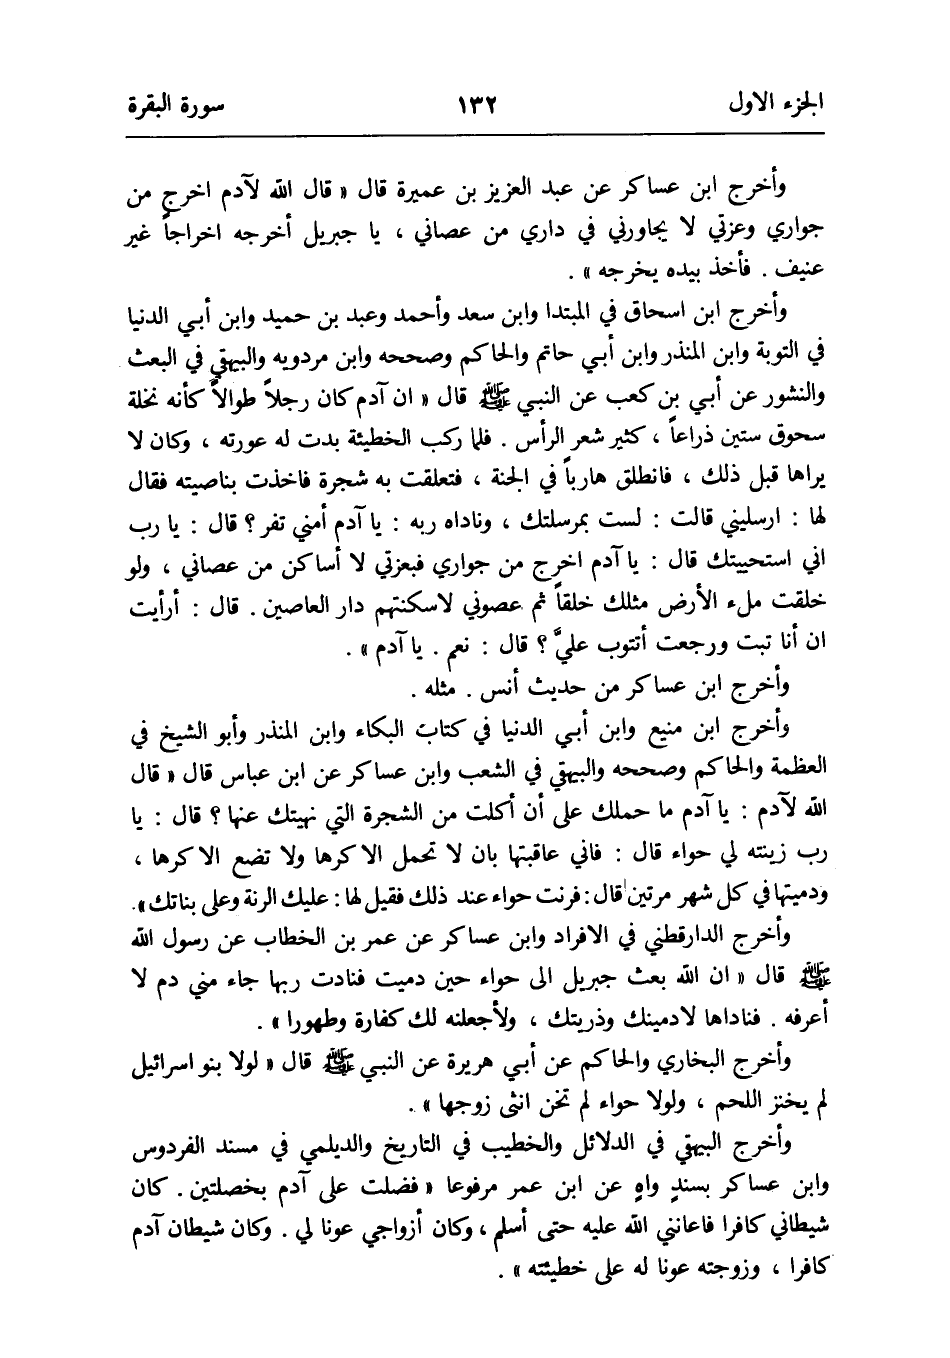 الجزء الاول ١٣٢ سورة البقرة
وأخرج ابن عساكر عن عبد العزيز بن عميرة قال « قال الله لآدم اخرج من
جواري وعزتي لا يجاورني في داري من عصاني ، يا جبريل أخرجه اخراجاً غير
عنيف . فأخذ بيده يخرجه » .
وأخرج ابن اسحاق في المبتدا وابن سعد وأحمد وعبد بن حميد وابن أبي الدنيا
في التوبة وابن المنذر وابن أبي حاتم والحاكم وصححه وابن مردويه والبيهقي في البعث
والنشور عن أبي بن كعب عن النبي ﷺ قال « ان آدم كان رجلاً طوالاً كأنه نخلة
سحوق ستين ذراعاً ، كثير شعر الرأس . فلما ركب الخطيئة بدت له عورته ، وكان لا
يراها قبل ذلك ، فانطلق هارباً في الجنة ، فتعلقت به شجرة فاخذت بناصيته فقال
لها : ارسليني قالت : لست بمرسلتك ، وناداه ربه : يا آدم أمني تفر ؟ قال : يا رب
اني استحييتك قال : يا آدم اخرج من جواري فبعزتي لا أساكن من عصاني ، ولو
خلقت ملء الأرض مثلك خلقاً ثم عصوني لاسكنتهم دار العاصين . قال : أرأيت
ان أنا تبت ورجعت أتتوب عليَّ ؟ قال : نعم . يا آدم » .
وأخرج ابن عساكر من حديث أنس . مثله .
وأخرج ابن منيع وابن أبي الدنيا في كتاب البكاء وابن المنذر وأبو الشيخ في
العظمة والحاكم وصححه والبيهقي في الشعب وابن عساكر عن ابن عباس قال « قال
الله لآدم : يا آدم ما حملك على أن أكلت من الشجرة التي نهيتك عنها ؟ قال : يا
رب زينته لي حواء قال : فاني عاقبتها بان لا تحمل الا كرها ولا تضع الا كرها ،
ودميتها في كل شهر مرتين قال : فرنت حواء عند ذلك فقيل لها : عليك الرنة وعلى بناتك » .
وأخرج الدارقطني في الافراد وابن عساكر عن عمر بن الخطاب عن رسول الله
ﷺ قال « ان الله بعث جبريل الى حواء حين دميت فنادت ربها جاء مني دم لا
أعرفه . فناداها لادمينك وذريتك ، ولأجعلنه لك كفارة وطهورا » .
وأخرج البخاري والحاكم عن أبي هريرة عن النبي ﷺ قال « لولا بنو اسرائيل
لم يخنز اللحم ، ولولا حواء لم تخن انثى زوجها » .
وأخرج البيهقي في الدلائل والخطيب في التاريخ والديلمي في مسند الفردوس
وابن عساكر بسندٍ واهٍ عن ابن عمر مرفوعا « فضلت على آدم بخصلتين . كان
شيطاني كافرا فاعانني الله عليه حتى أسلم ، وكان أزواجي عونا لي . وكان شيطان آدم
كافرا ، وزوجته عونا له على خطيئته » .